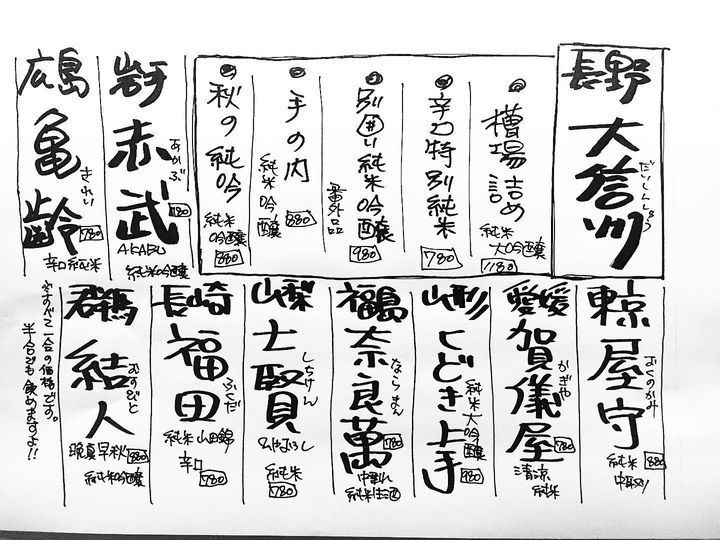 長野
大信州
だいしんしゅう
槽場詰め
純米
大吟醸
1180
辛口特別純米
780
別囲い純米吟醸
番外品
980
手の内
純米吟醸
880
秋の純吟
純米
吟醸
880
岩手
赤武
あかぶ
AKABU
780
純米吟醸
広島
亀齢
きれい
780
辛口純米
東京
屋守
おくのかみ
純米
880
中取り
愛媛
賀儀屋
かぎや
780
清涼
純米
山形
くどき上手
純米大吟醸
780
福島
奈良萬
ならまん
780
中垂れ
純米生酒
山梨
七賢
しちけん
ひやおろし
純米
780
長崎
福田
ふくだ
純米 山田錦
辛口
780
群馬
結人
むすびと
晩夏早秋
880
純米吟醸
※すべて一合の価格です。
半合でも飲めますよ!!